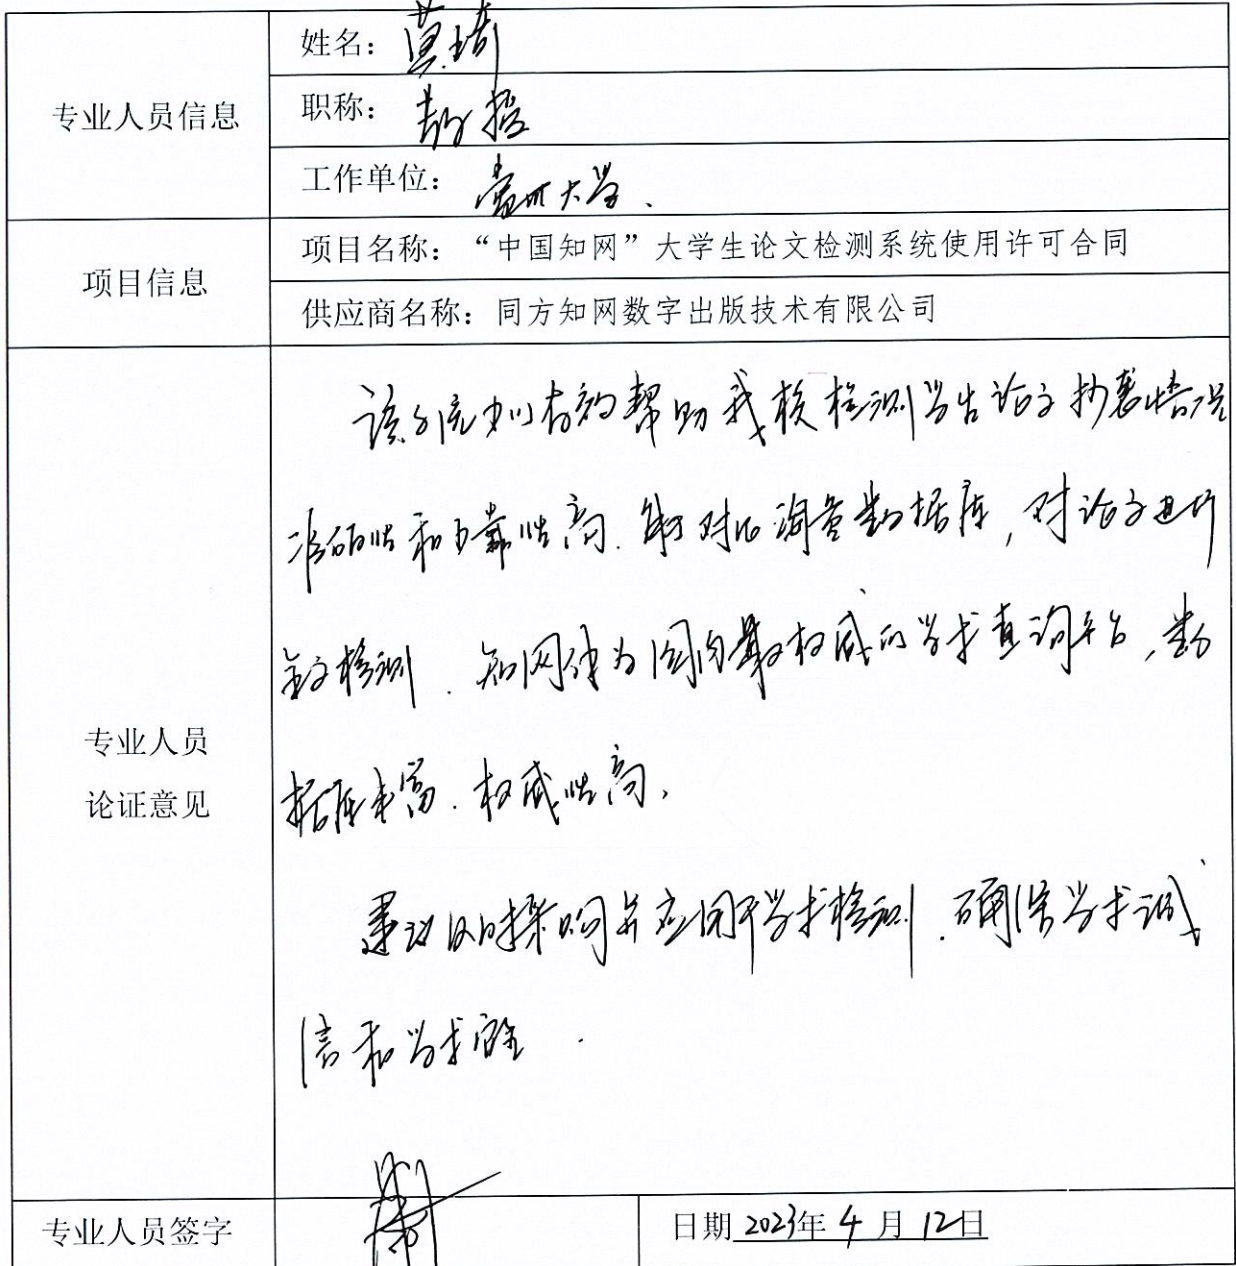 专业人员信息
姓名：莫琦
职称：教授
工作单位：贵州大学.
项目信息
项目名称：“中国知网”大学生论文检测系统使用许可合同
供应商名称：同方知网数字出版技术有限公司
专业人员
论证意见
该系统可以有效帮助我校检测学生论文抄袭情况
准确性和可靠性高. 能对比海量数据库, 对论文进行
全文检测. 知网作为国内最权威的学术查询平台, 数
据库丰富. 权威性高.
建议及时采购并应用于学术检测. 确保学术诚
信和学术安全.
专业人员签字
日期 2023年 4 月 12日